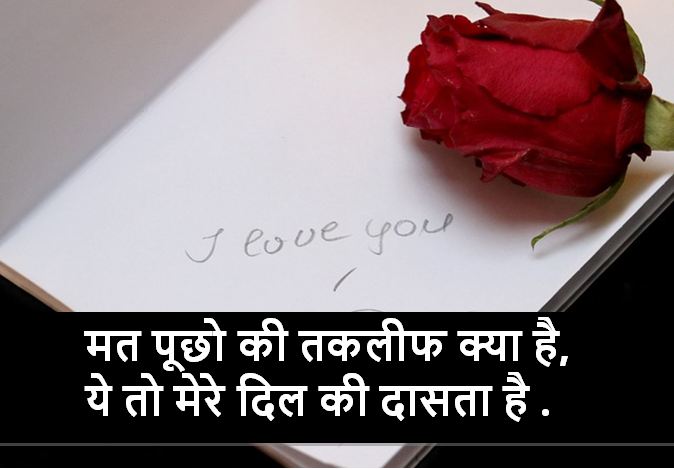 I love you
मत पूछो की तकलीफ क्या है,
ये तो मेरे दिल की दासता है .